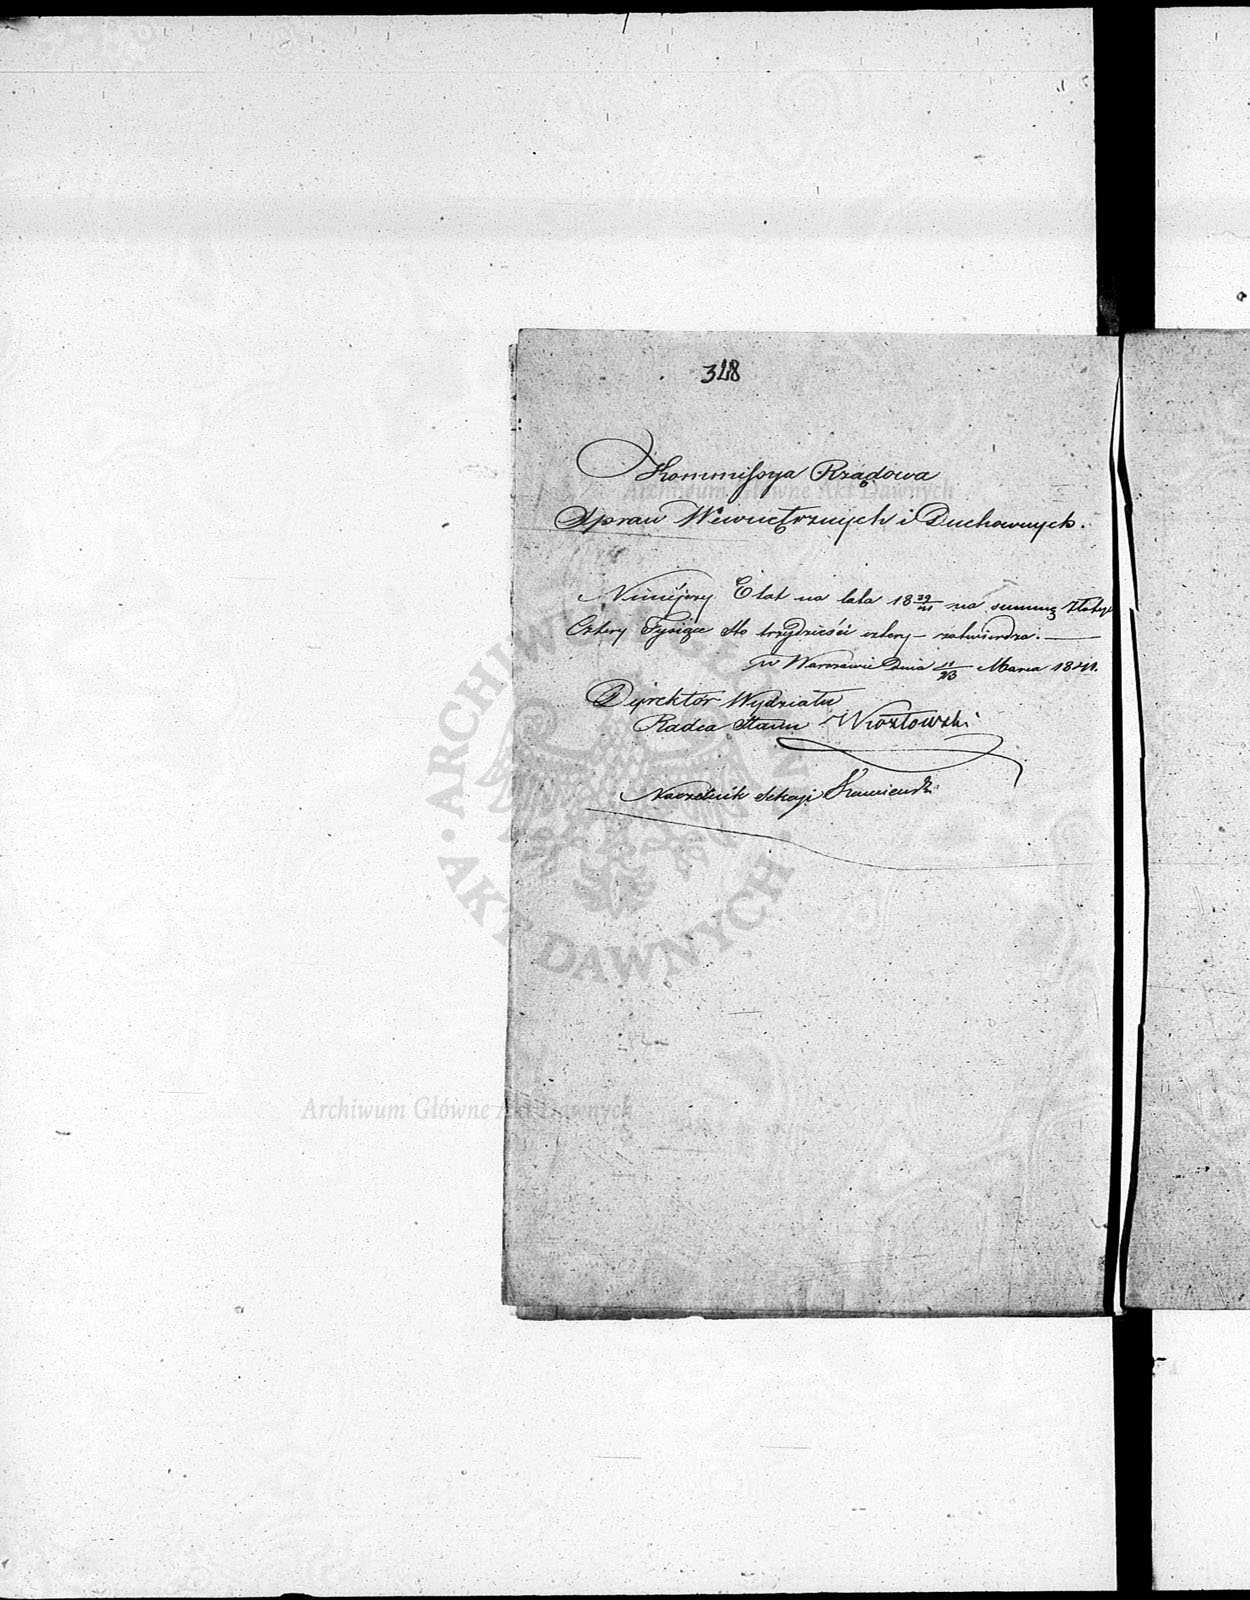 328
Kommissya Rządowa
Spraw Wewnętrznych i Duchownych.
Ninieyszy Etat na lata 18 39/41 na summę Złotych
Cztery Tysiące sto trzydzieści cztery – zatwierdza. —
w Warszawie Dnia 11/23 Marca 1841.
Dyrektór Wydziału
Radca Stanu
Naczelnik Sekcyi Kamieński
Archiwum Główne Akt Dawnych
ARCHIWUM GŁÓWNE
AKT DAWNYCH
Archiwum Główne Akt Dawnych